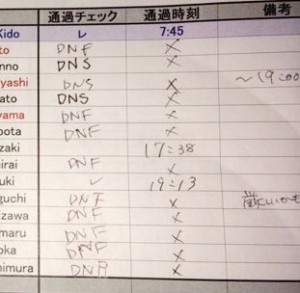 通過チェック 通過時刻 備考
Kido レ 7:45
to DNF ×
nno DNS ×
yashi DNS × ～19:00
ato DNS ×
yama DNF ×
bota DNF ×
zaki 17:38
irai DNF ×
uki レ 19:13
guchi DNF ×
izawa DNF ×
maru DNF ×
oka DNF ×
himura ×